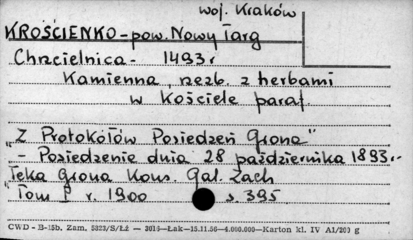 woj. Kraków
KROŚCIENKO - pow. Nowy Targ
Chrzcielnica - 1493 r
Kamienna, rzeźb. z herbami
w Kościele paraf.
„Z Protokółów Posiedzeń Grona"
- Posiedzenie dnia 28 października 1893 r.
Teka Grona Kons. Gal. Zach
Tom I r. 1900 s. 395
CWD - B-15b. Zam. 5323/S/Łź — 3014—Łak—15.11.56—4.000.000—Karton kl. IV A1/200 g